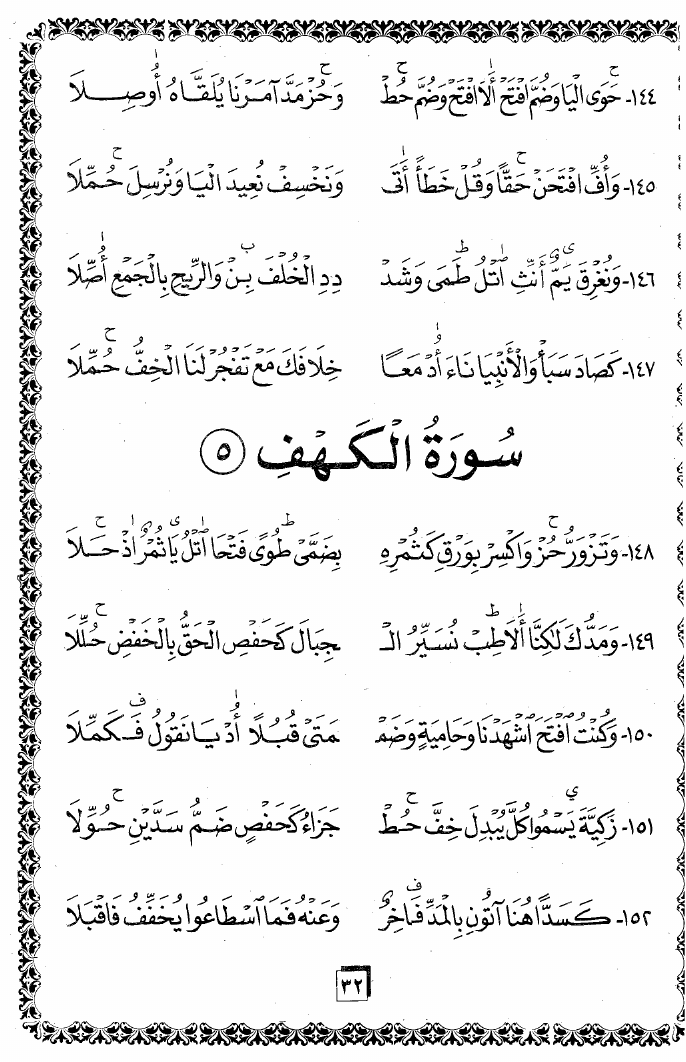 ١٤٤- حَوَى الْيَا وَضُمَّ افْتَحْ أَلَا افْتَحْ وَضُمَّ حُطْ وَحُزْ مَدَّ آمَرْنَا يُلَقَّاهُ أُوصِلَا
١٤٥- وَأُفِّ افْتَحَنْ حَقًّا وَقُلْ خَطَأً أَتَى وَنَخْسِفْ نُعِيدَ الْيَا وَنُرْسِلَ حُمِّلَا
١٤٦- وَنُغْرِقَ يَمٌّ أَنِّثِ اتْلُ طَمَى وَشَدْ دِدِ الْخُلْفَ بِنْ وَالرِّيحِ بِالْجَمْعِ أُصِّلَا
١٤٧- كَصَادَ سَبَأْ وَالْأَنْبِيَا نَاءَ أُدْ مَعًا خِلَافَكَ مَعْ تَفْجُرْ لَنَا الْخِفُّ حُمِّلَا
سُورَةُ الْكَهْفِ ٥
١٤٨- وَتَزْوَرُّ حُزْ وَاكْسِرْ بِوَرْقِ كَثُمْرِهِ بِضَمَّىْ طُوًى فَتْحَا اتْلُ يَا ثُمُرْ اذْ حَلَا
١٤٩- وَمَدُّكَ لَكِنَّا أَلَا طِبْ نُسَيِّرُ الْـ جِبَالَ كَحَفْصِ الْحَقُّ بِالْخَفْضِ حُلِّلَا
١٥٠- وَكُنْتَ افْتَحَ اشْهَدْنَا وَحَامِيَةٍ وَضَمْـ مَتَىْ قُبُلًا أُدْ يَا نَقُولُ فَـكَمِّلَا
١٥١- زَكِيَّةَ يَسْمُوا كُلَّ يُبْدِلَ خِفَّ حُطْ جَزَاءُ كَحَفْصٍ ضَمُّ سَدَّيْنِ حُوِّلَا
١٥٢- كَسَدًّا هُنَا آتُونِ بِالْمَدِّ فَاخِرٌ وَعَنْهُ فَمَا اسْطَاعُوا يُخَفِّفُ فَاقْبَلَا
٣٢